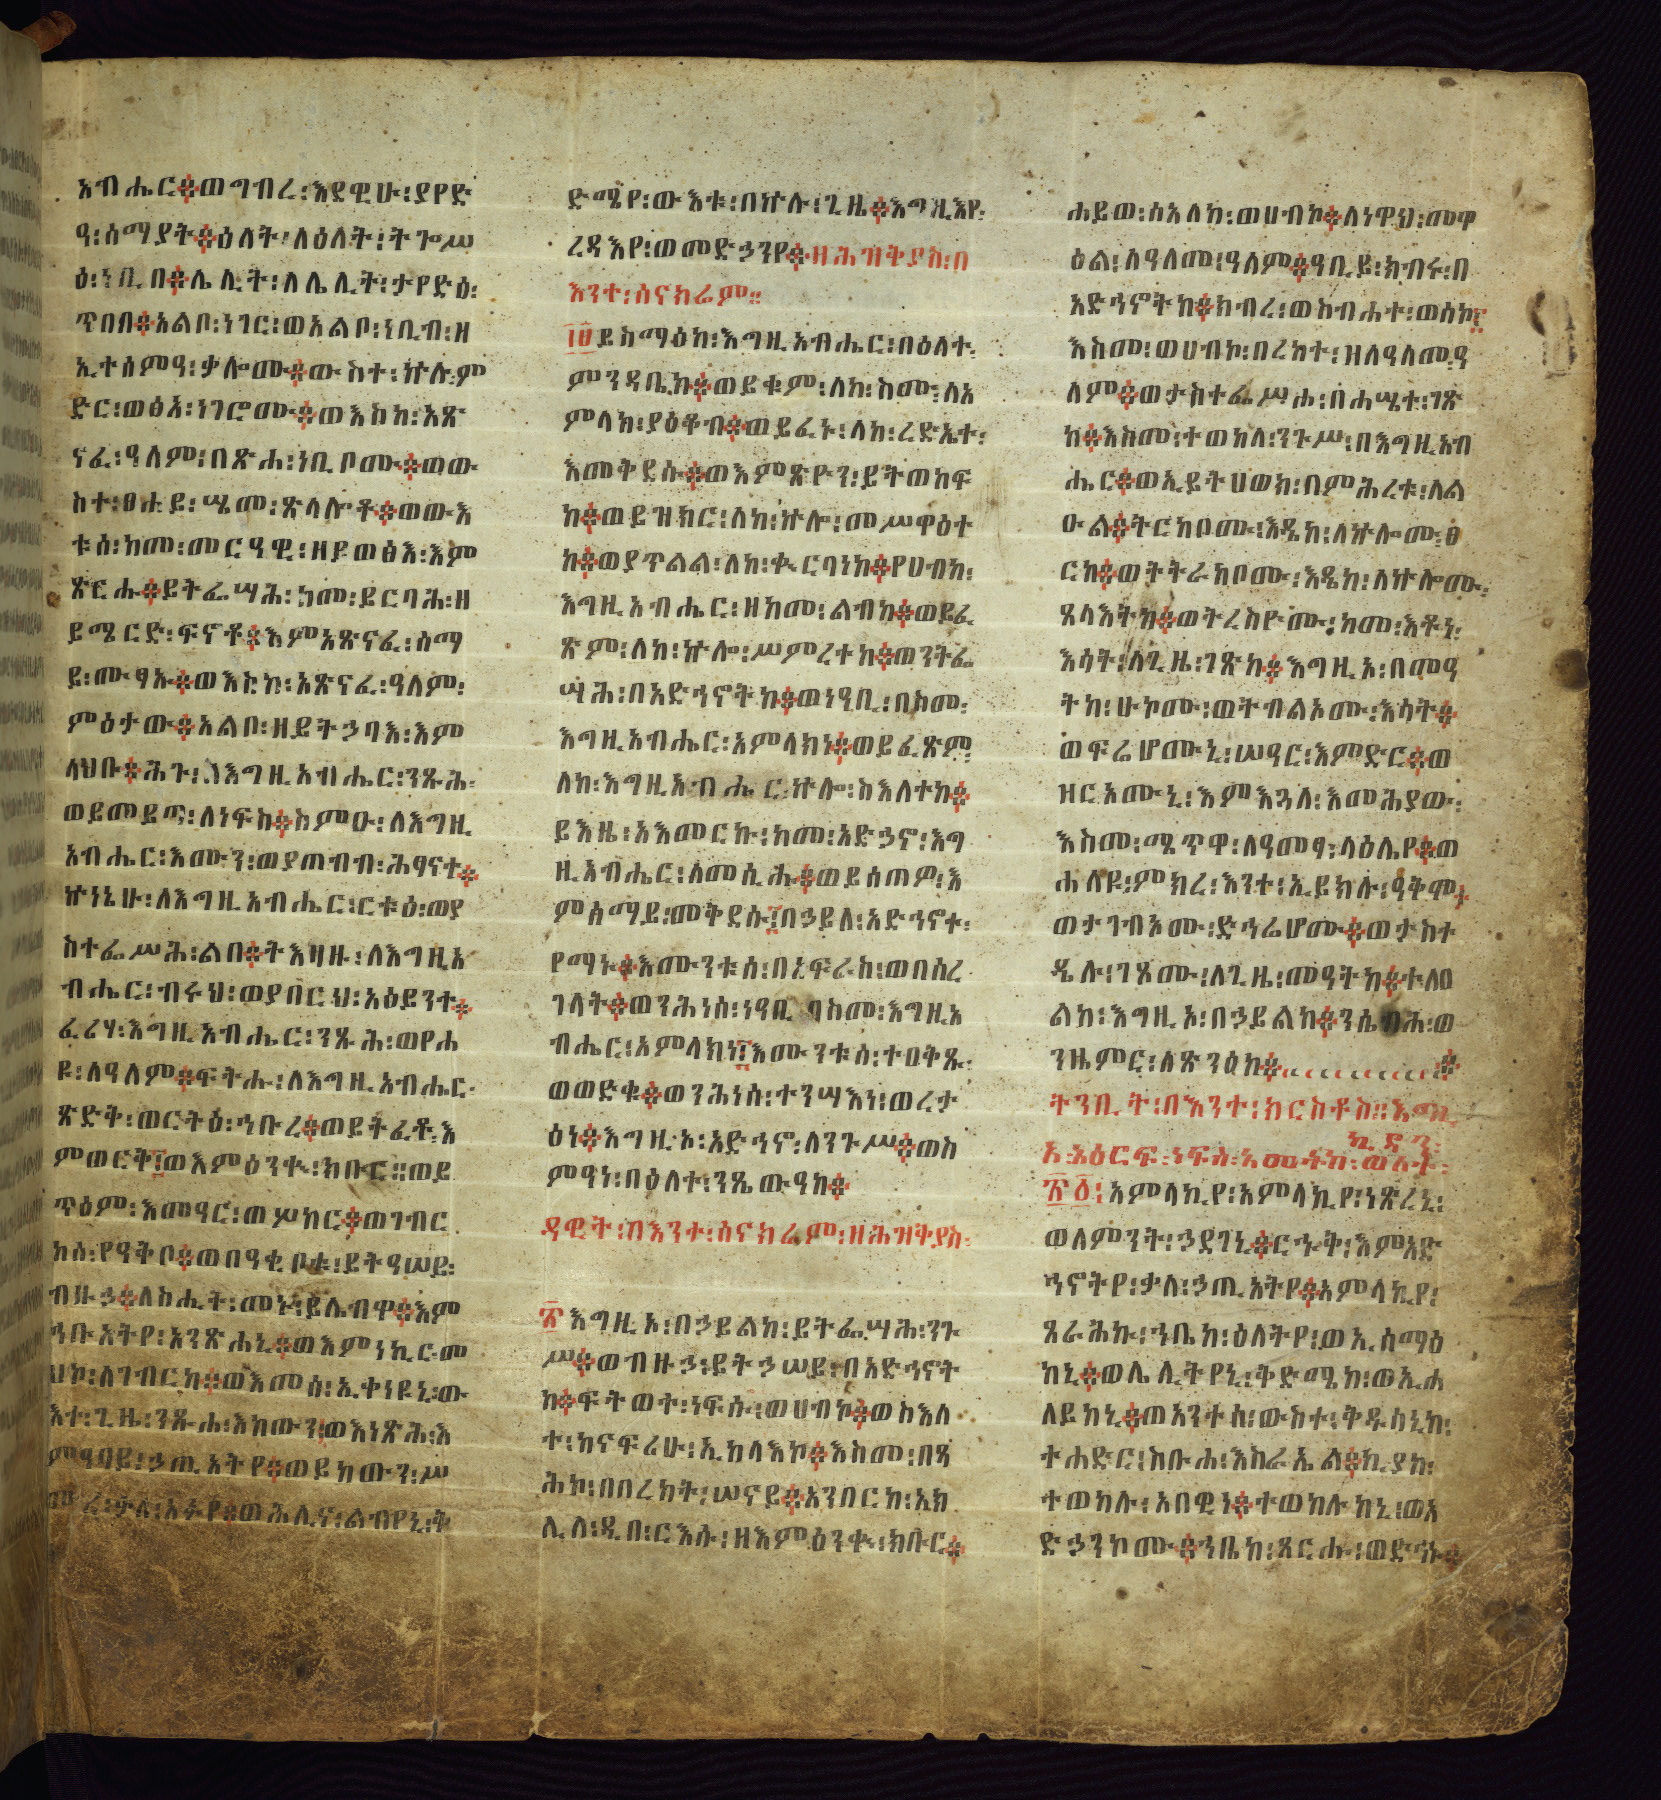 አብሔር፨ወግብረ፡እደዊሁ፡ያየድ
ዓ፡ሰማያት፨ዕለት፡ለዕለት፡ትጐሥ
ዕ፡ነቢበ፨ሌሊት፡ለሌሊት፡ታየድዕ፡
ጥበበ፨አልቦ፡ነገር፡ወአልቦ፡ነቢብ፡ዘ
ኢተሰምዓ፡ቃሎሙ፨ውስተ፡ኵሉ፡ም
ድር፡ወፅአ፡ነገሮሙ፨ወእስከ፡አጽ
ናፈ፡ዓለም፡በጽሐ፡ነቢቦሙ፨ወው
ስተ፡ፀሐይ፡ሤመ፡ጽላሎቶ፨ወውእ
ቱሰ፡ከመ፡መርዓዊ፡ዘይወፅእ፡እም
ጽርሑ፨ይትፌሣሕ፡ከመ፡ይርባሕ፡ዘ
ይሜርድ፡ፍኖቶ፨እምአጽናፈ፡ሰማ
ይ፡ሙፃኡ፨ወእስከ፡አጽናፈ፡ዓለም፡
ምዕታው፨አልቦ፡ዘይትኃባእ፡እም
ላህቡ፨ሕጉ፡ለእግዚአብሔር፡ንጹሕ፡
ወይመይጣ፡ለነፍስ፨ስምዑ፡ለእግዚ
አብሔር፡እሙን፡ወያጠብብ፡ሕፃናተ፨
ኵነኔሁ፡ለእግዚአብሔር፡ርቱዕ፡ወያ
ስተፌሥሕ፡ልበ፨ትእዛዙ፡ለእግዚአ
ብሔር፡ብሩህ፡ወያበርህ፡አዕይንተ፨
ፈሪሃ፡እግዚአብሔር፡ንጹሕ፡ወየሐ
ዩ፡ለዓለም፨ፍትሑ፡ለእግዚአብሔር፡
ጽድቅ፡ወርትዕ፡ኅቡረ፨ወይትፈቶ፡እ
ምወርቅ፤ወእምዕንቍ፡ክቡር።ወይ
ጥዕም፡እመዓር፡ወሦከር፨ወገብር
ከሰ፡የዓቅቦ፨ወበዓቂቦቱ፡ይትዓሠይ፡
ብዙኃ፨ለስሒት፡መኑ፡ይሌብዋ፨እም
ኅቡአትየ፡አንጽሐኒ፨ወእምነኪር፡መ
ህኮ፡ለገብርከ፨ወእመሰ፡ኢቀነዩኒ፡ው
እተ፡ጊዜ፡ንጹሐ፡እከውን፡ወእነጽሕ፡እ
ምዓባይ፡ኃጢአትየ፨ወይከውን፡ሥ
ሙረ፡ቃለ፡አፉየ፨ወሕሊና፡ልብየኒ፡ቅ
ድሜየ፡ውእቱ፡በኵሉ፡ጊዜ፨እግዚእየ፡
ረዳእየ፡ወመድኃንየ፨ዘሕዝቅያስ፡በ
እንተ፡ሰናክሬም።
፲፱ይስማዕከ፡እግዚአብሔር፡በዕለተ፡
ምንዳቤከ፨ወይቁም፡ለከ፡ስሙ፡ለአ
ምላክ፡ያዕቆብ፨ወይፈኑ፡ለከ፡ረድኤተ፡
እመቅደሱ፨ወእምጽዮን፡ይትወከፍ
ከ፨ወይዝክር፡ለከ፡ኵሎ፡መሥዋዕተ
ከ፨ወያጥልል፡ለከ፡ቍርባነከ፨የሀብከ፡
እግዚአብሔር፡ዘከመ፡ልብከ፨ወይፈ
ጽም፡ለከ፡ኵሎ፡ሥምረተከ፨ወንትፌ
ሣሕ፡በአድኅኖትከ፨ወነዓቢ፡በስመ፡
እግዚአብሔር፡አምላክነ፨ወይፈጽም፡
ለከ፡እግዚአብሔር፡ኵሎ፡ስእለተከ፨
ይእዜ፡አእመርኩ፡ከመ፡አድኃኖ፡እግ
ዚአብሔር፡ለመሲሑ፨ወይሰጠዎ፡እ
ምሰማይ፡መቅደሱ፤በኃይለ፡አድኅኖተ፡
የማኑ፨እሙንቱሰ፡በአፍራስ፡ወበሰረ
ገላት፨ወንሕነሰ፡ነዓቢ፡በስመ፡እግዚአ
ብሔር፡አምላክነ፤እሙንቱሰ፡ተዐቅጹ፡
ወወድቁ፨ወንሕነሰ፡ተንሣእነ፡ወረታ
ዕነ፨እግዚኦ፡አድኅኖ፡ለንጉሥ፨ወስ
ምዓነ፡በዕለተ፡ንጼውዓከ፨
ዳዊት፡በእንተ፡ሰናክሬም፡ዘሕዝቅያስ፡
፳እግዚኦ፡በኃይልከ፡ይትፌሣሕ፡ንጉ
ሥ፨ወብዙኃ፡ይትኃሠይ፡በአድኅኖት
ከ፨ፍትወተ፡ነፍሱ፡ወሀብኮ፨ወስእለ
ተ፡ከናፍሪሁ፡ኢከላእኮ፨እስመ፡በጻ
ሕኮ፡በበረከት፡ሠናይ፨አንበርከ፡አክ
ሊለ፡ዲበ፡ርእሱ፡ዘእምዕንቍ፡ክቡር፨
ሐይወ፡ሰአለከ፡ወሀብኮ፨ለነዋኅ፡መዋ
ዕል፡ለዓለመ፡ዓለም፨ዓቢይ፡ክብሩ፡በ
አድኅኖትከ፨ክብረ፡ወስብሐተ፡ወሰኮ፤
እስመ፡ወሀብኮ፡በረከተ፡ዘለዓለመ፡ዓ
ለም፨ወታስተፌሥሖ፡በሐሤተ፡ገጽ
ከ፨እስመ፡ተወከለ፡ንጉሥ፡በእግዚአብ
ሔር፨ወኢይትሀወክ፡በምሕረቱ፡ለል
ዑል፨ትርከቦሙ፡እዴከ፡ለኵሎሙ፡ፀ
ርከ፨ወትትራከቦሙ፡እዴከ፡ለኵሎሙ፡
ጸላእትከ፨ወትረስዮሙ፡ከመ፡እቶነ፡
እሳት፡ለጊዜ፡ገጽከ፨እግዚኦ፡በመዓ
ትከ፡ሁኮሙ፡ወትብልኦሙ፡እሳት፨
ወፍሬሆሙኒ፡ሠዓር፡እምድር፨ወ
ዘርአሙኒ፡እምእጓለ፡እመሕያው፡
እስመ፡ሜጥዋ፡ለዓመፃ፡ላዕሌየ፨ወ
ሐለዩ፡ምክረ፡እንተ፡ኢይክሉ፡ዓቅሞ፨
ወታገብኦሙ፡ድኅሬሆሙ፨ወታስተ
ዴሉ፡ገጾሙ፡ለጊዜ፡መዓትከ፨ተለዐ
ልከ፡እግዚኦ፡በኃይልከ፨ንሴብሕ፡ወ
ንዜምር፡ለጽንዕከ፨
ትንቢት፡በእንተ፡ክርስቶስ።
፳፩፤አምላኪየ፡አምላኪየ፡ነጽረኒ፡
ወለምንት፡ኃደገኒ፨ርኁቅ፡እምአድ
ኅኖትየ፡ቃለ፡ኃጢአትየ፨አምላኪየ፡
ጸራሕኩ፡ኀቤከ፡ዕለትየ፡ወኢሰማዕ
ከኒ፨ወሌሊትየኒ፡ቅድሜከ፡ወኢሐ
ለይከኒ፨ወአንተሰ፡ውስተ፡ቅዱሳኒከ፡
ተሐድር፡ስቡሐ፡እስራኤል፨ኪያከ፡
ተወከሉ፡አበዊነ፨ተወከሉከኒ፡ወአ
ድኃንኮሙ፨ኀቤከ፡ጸርሑ፡ወድኅኑ፨